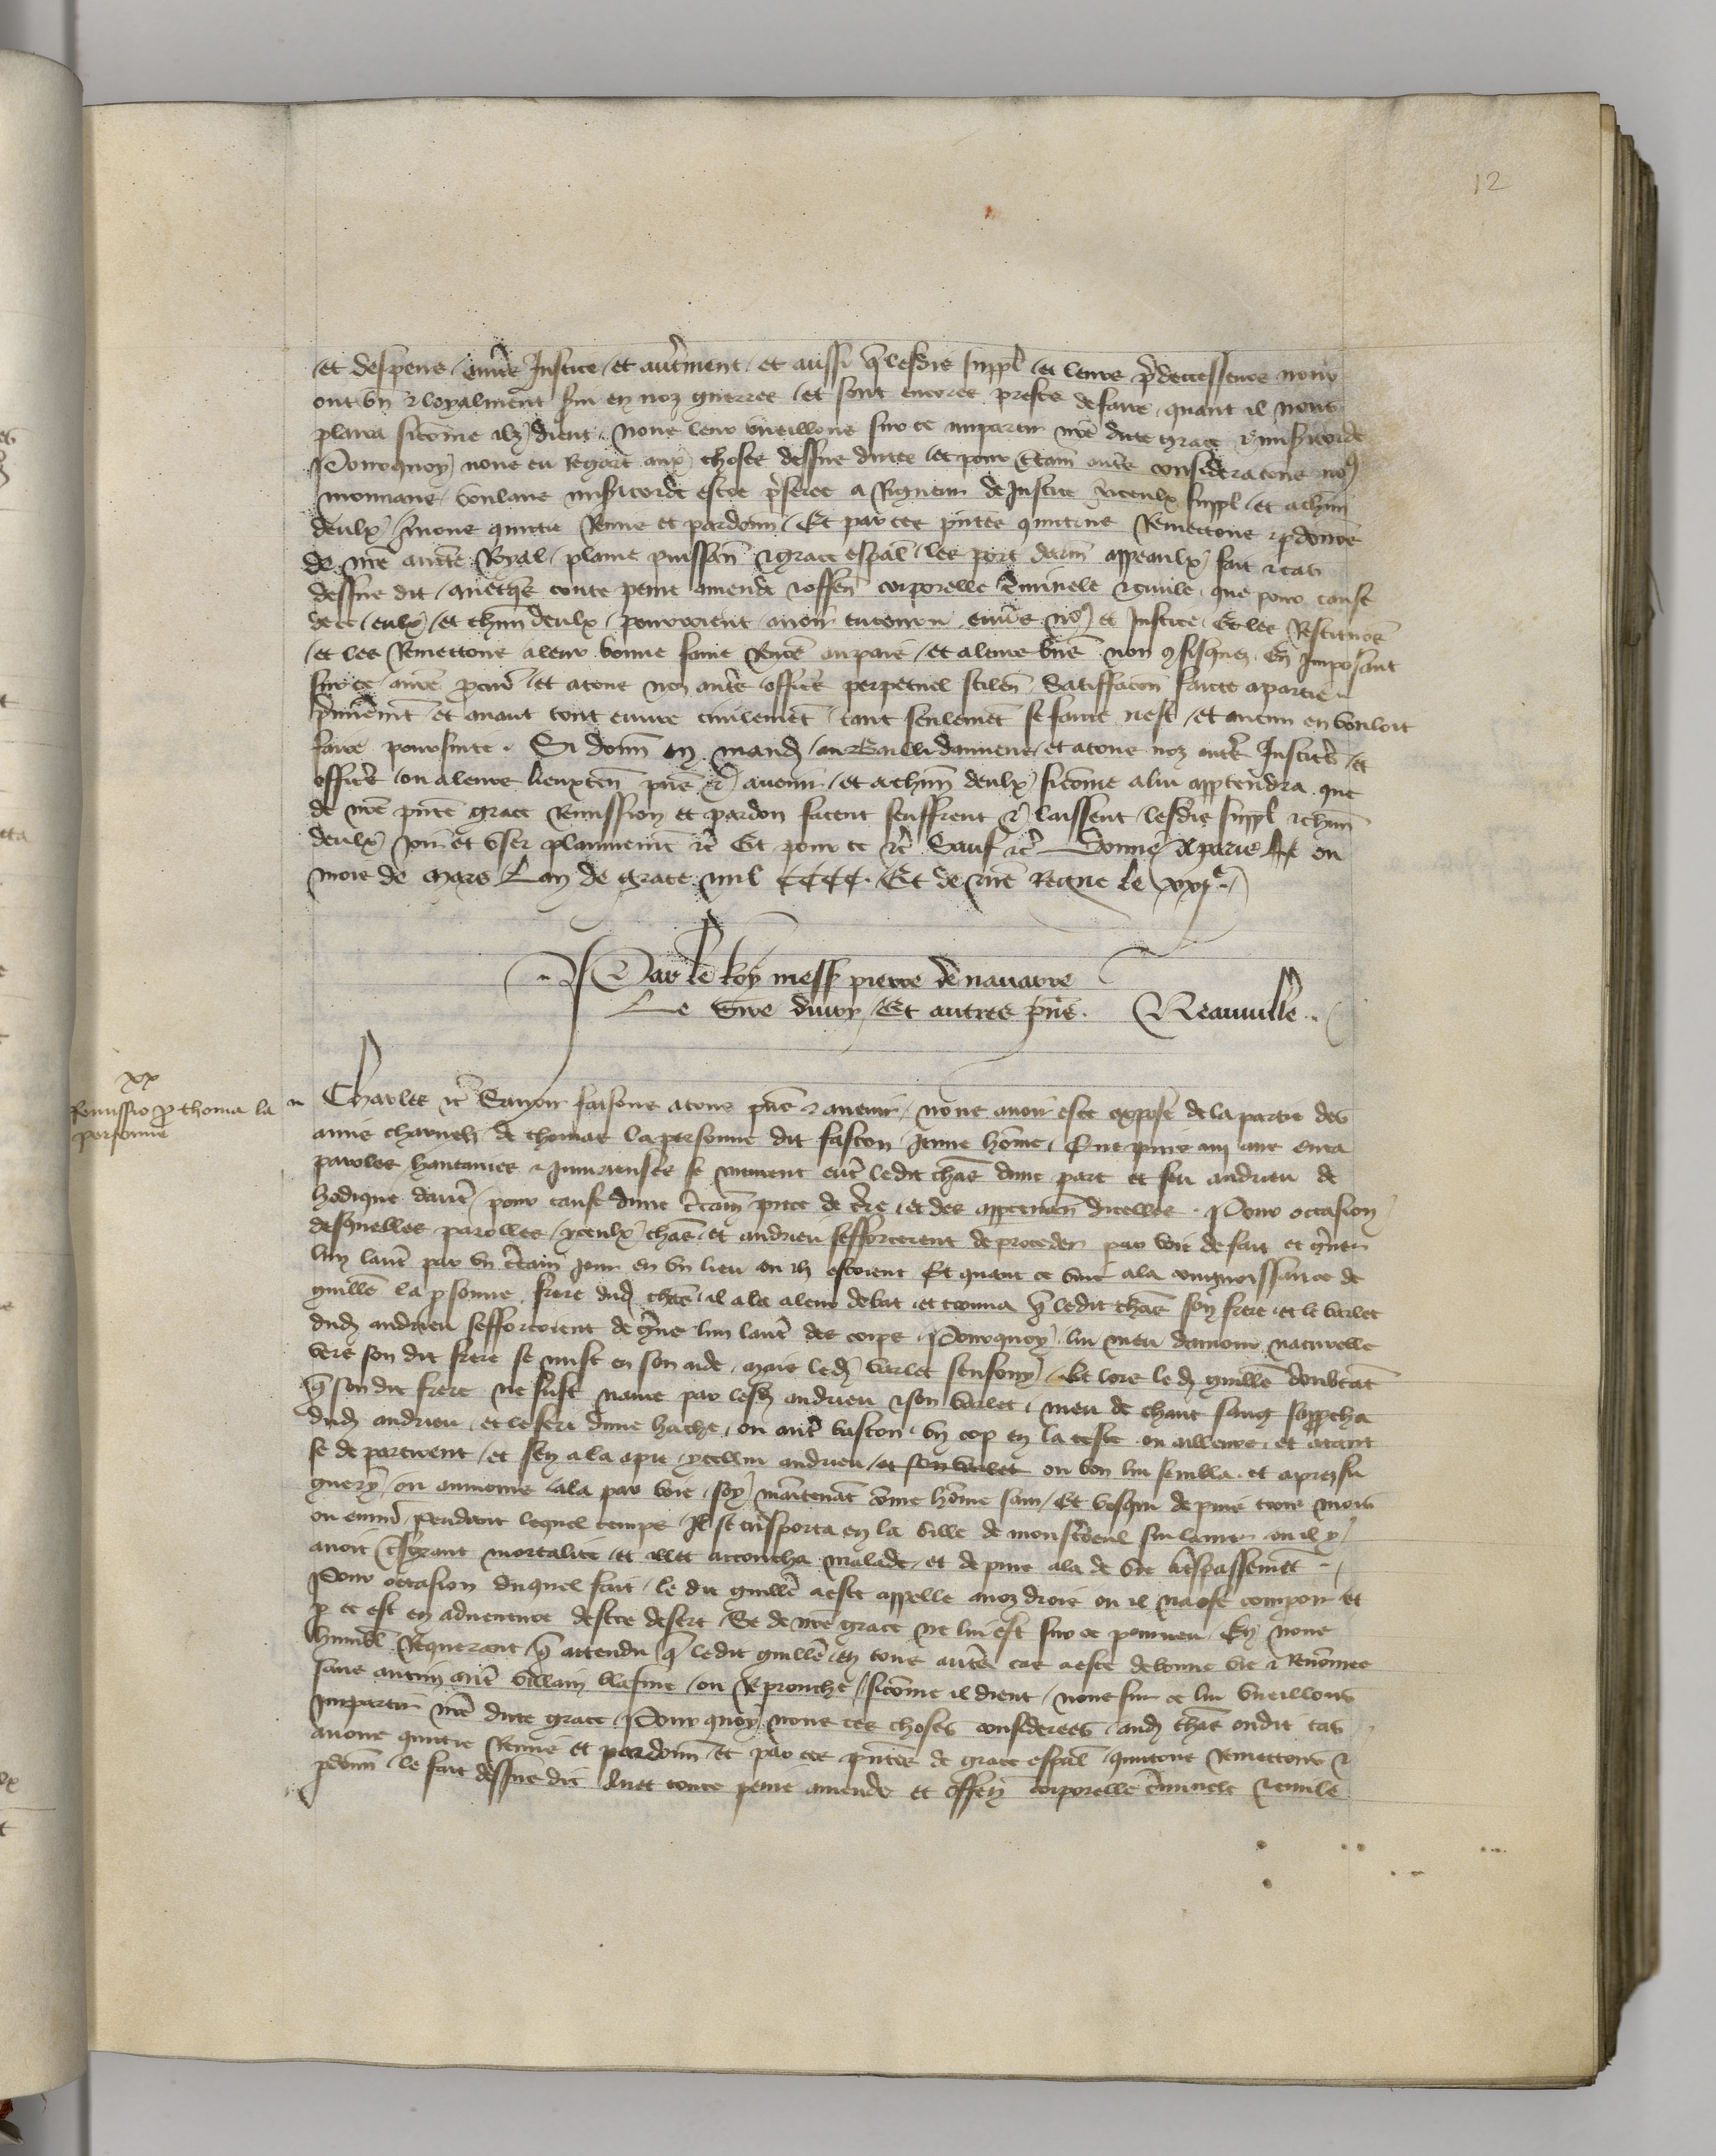 12
et despens envers Justice et autrement et aussi q̃ lesdis suppl̃ et leurs p̃decesseurs nous
ont bñ ⁊ loyalment servi en noz guerres et sont encores prestz de faire quant il nous
plaira sicom̃e ilz dient nous leur vueillons sur ce impartir nr̃e dite grace ⁊ misericorde
Pourquoy nous eu Regart aux choses dessus dictes et pour c̃tain autres consideracons nous
mouvans voulans misericorde estre p̃feree a Rigueur de Justice yceulx suppl̃ et achũn
deulx avons quictie Remis et pardonñ Et par ces p̃ntes quictons Remectons ⁊ p̱donons
de nr̃e auctẽ Royal plaine puissanc̃ ⁊ grace esp̃al les port darm̃ appeaulx fait ⁊ cas
dessus dit avecq̃s toute peine amende ⁊ offense corporelle c̃minele ⁊ civile que pour cause
de ce eulx et chũn deulx pourroient avoir encouru envers nous et Justice Et les Restituons
et les Remettons a leur bonne fame Renõe au pais et a leurs biẽs non ꝯfisquez En Imposant
sur ce a nr̃e p̱cur̃ et a tous noz autres officiers perpetuel silenc̃ Satiffacon faicte a partie
p̃mierem̃t et avant tout euvre civilemẽt tant seulemẽt se faicte nest et aucun en vouloit
faire poursuite Si donñ en mandem̃ au Bailli damiens et a tous noz autres Justiciers et
officiers ou a leurs lieuxteñ p̃ns ⁊ avenir et a chũn deulx sicom̃e a lui app̱tendra que
de nr̃e p̃nte grace Remission et pardon facent seuffrent ⁊ laissent lesdis suppl̃ ⁊ chũn
deulx Joir et vser plainemẽt ⁊c̃ Et pour ce ⁊c̃ Sauf ⁊c̃ Donne a paris ou
mois de mars Lan de grace mil CCCC Et de nr̃e Regne le xxj.e
Par le Roy mess̃ pierre de navarre
Le sire divry Et autres p̃ns. Neauville
xx
Remissio p̱ thoma la
personne
Charles ⁊c̃ Savoir faisons a tous p̃ns ⁊ avenir nous avoir este expose de la partie des
amis charnelz de thomas la personne dit fascon Jeune hom̃e Que puis iiij ans enca
paroles hautaines ⁊ Injurieuses se murent entr̃ ledit charl̃ dune part et feu andrieu de
hodique dautr̃ pour cause dune c̃taine piece de tr̃e et des appartenanc̃ dicelles Pour occasion
desquelles parolles yceulx charl̃ et andrieu sefforcerent de proceder par voie de fait et grever
lun lautr̃ par vn c̃tain Jour en vn lieu ou ilz estoient Et quant ce vint a la congnoissance de
guillẽ la p̱sonne frere dud̃ charl̃ il ala a leur debat et trouva q̃ ledit charl̃ son frere et le varlet
dud̃ andrieu sefforcoient de grever lun lautr̃ des corps Pourquoy lui meu damour naturelle
vers son dit frere se mist en son aide mais led̃ varlet senfouy Et lors led̃ guillẽ doubtãt
q̃ sondit frere ne fust navre par lesd̃ andrieu ⁊ son varlet meu de chaut sang sapprocha
dud̃ andrieu et le feri dune hache ou autr̃ baston vn cop en la teste ou ailleurs et atant
se departirent et sen ala apres ycellui andrieu et son varlet ou bon lui sembla et aprez fu
guery ou au moins ala par voie soy maintenãt com̃e hom̃e sain Et vesqui depuis trois mois
ou environ pendant lequel temps Il se tr̃sporta en la ville de monstereul sur la mer ou il y
avoit tresgrant mortalite et illec accoucha malade et depuis ala de vie a trespassemẽt
Pour occasion duquel fait le dit guillẽ a este appelle a noz drois ou il na ose comparoir et
p̱ ce est en adventure destre desert Se de nr̃e grace ne lui est sur ce pourveu En nous
humbl̃ Requerant q̃ attendu q̃ ledit guillẽ en tous autres cas a este de bonne vie ⁊ Renom̃ee
sans aucun autr̃ villain blasme ou Reprouche sicom̃e il dient nous sur ce lui vueillons
Impartir nr̃e dicte grace Pour quoy nous ces choses considerees aud̃ charl̃ oudit cas
avons quictie Remis et pardonñ et par ces p̃ntes de grace esp̃al quictons Remettons ⁊
p̱donñ le fait dessus dit avec toute peine amende et offense corporelle c̃minele ⁊ civile